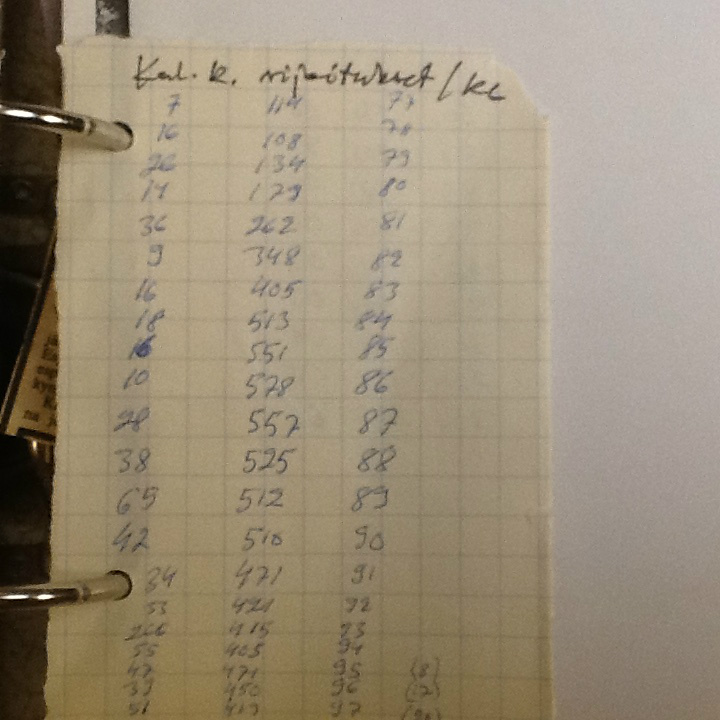 Kal. k. ripeitukset / kc
7 114 77
16 108 78
26 134 79
14 179 80
36 262 81
9 348 82
16 405 83
18 513 84
16 551 85
10 578 86
28 557 87
38 525 88
65 512 89
42 510 90
34 471 91
53 92
266 415 93
55 405 94
47 471 95 (8)
39 450 96 (7)
51 419 97